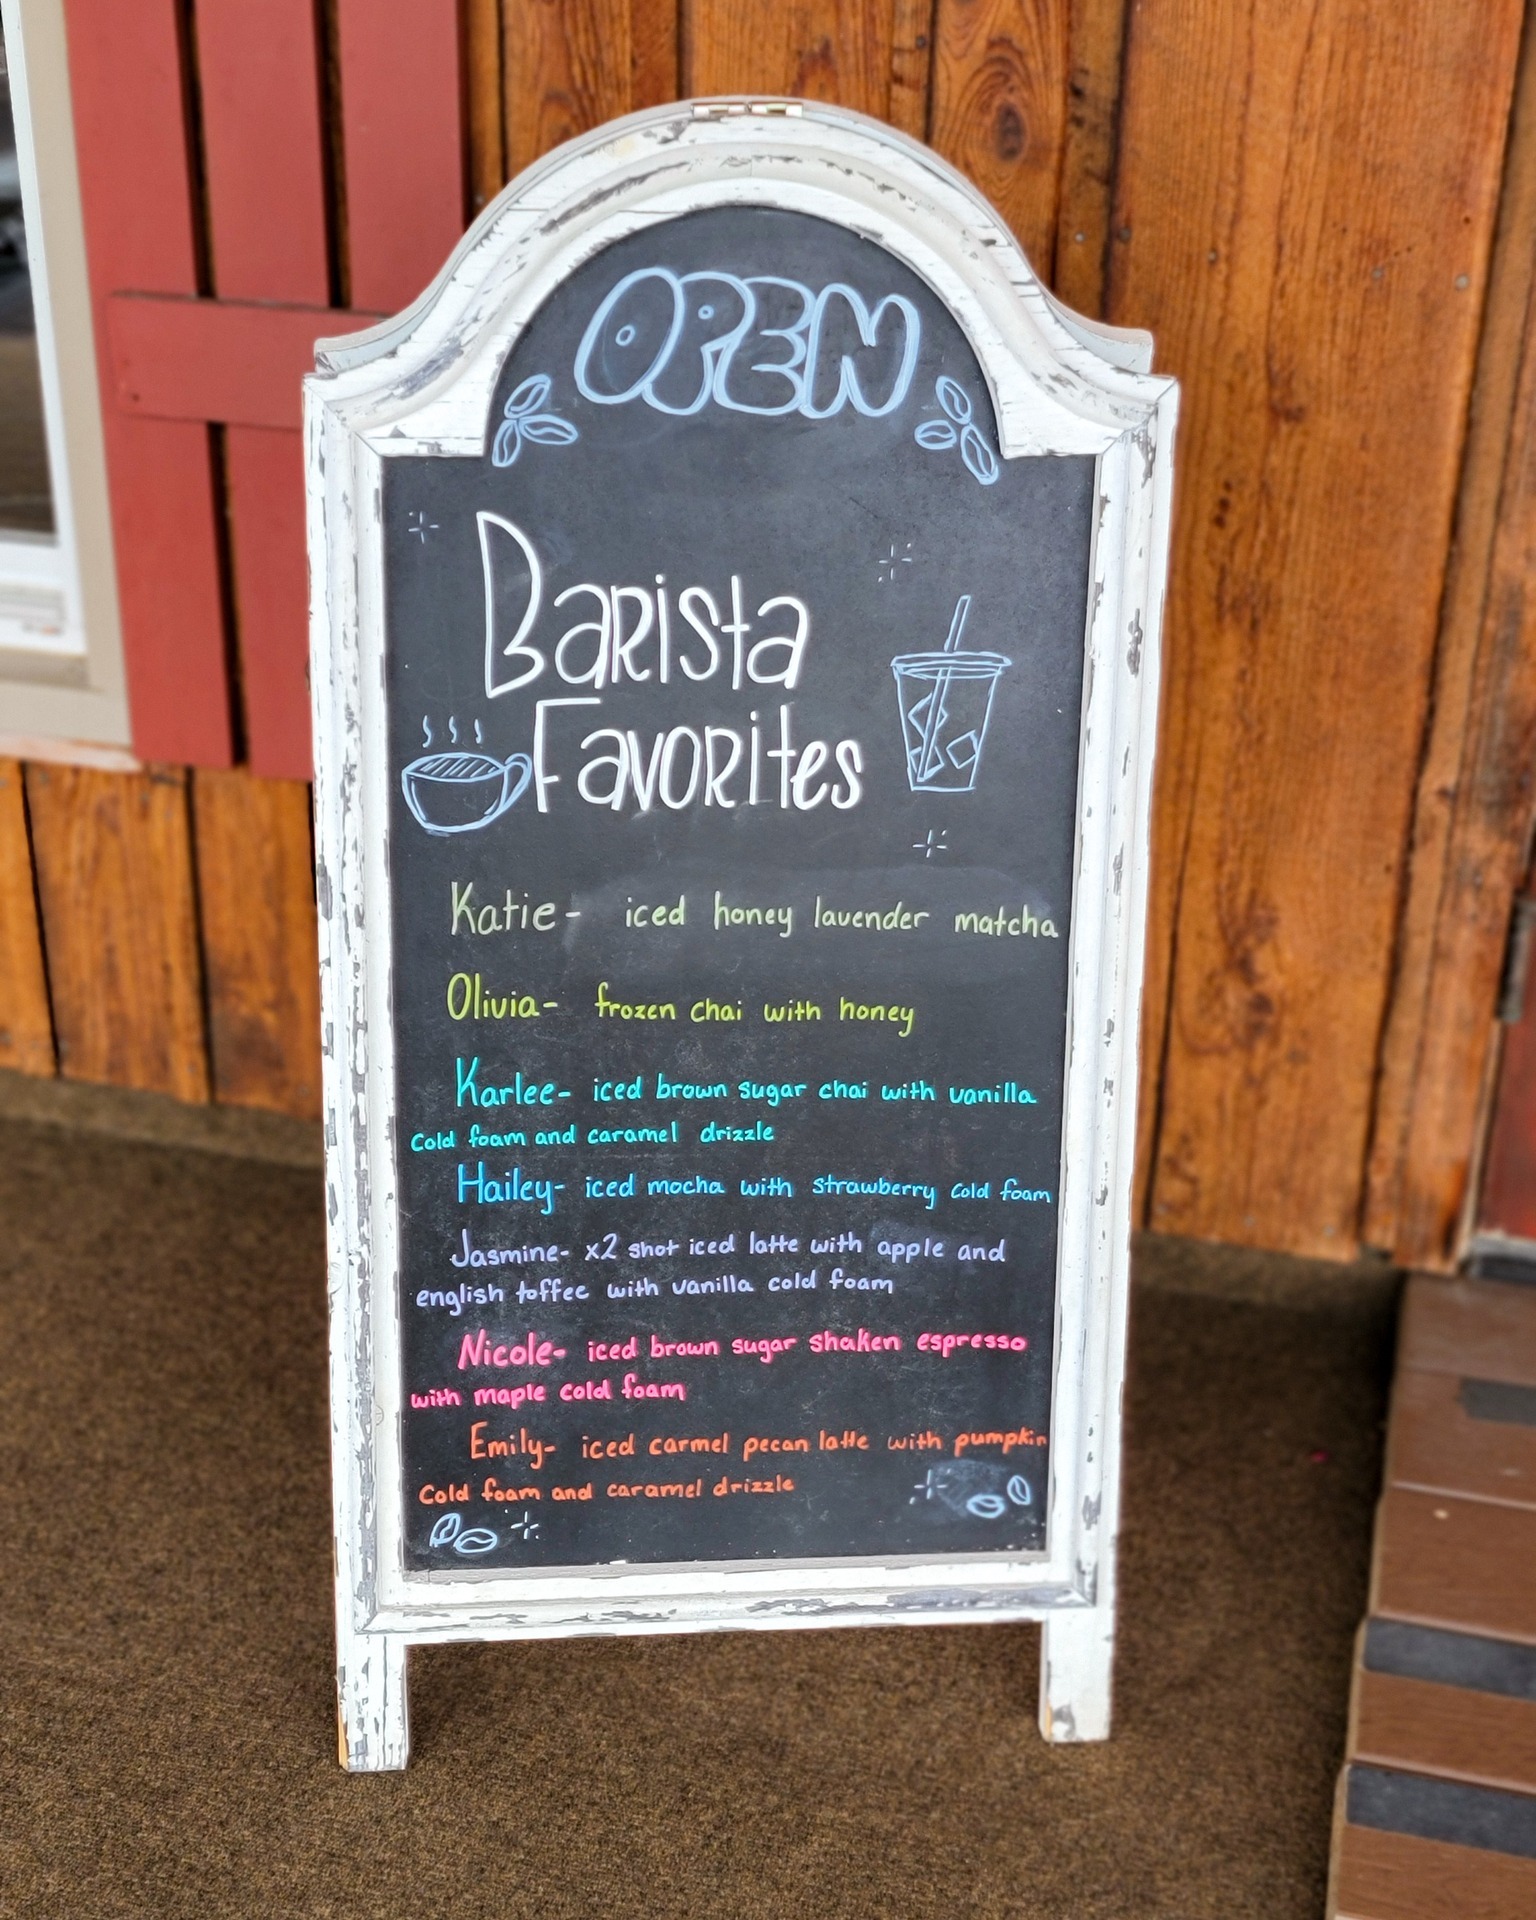 OPEN
Barista
Favorites
Katie- iced honey lavender matcha
Olivia- frozen chai with honey
Karlee- iced brown sugar chai with vanilla
cold foam and caramel drizzle
Hailey- iced mocha with strawberry cold foam
Jasmine- x2 shot iced latte with apple and
english toffee with vanilla cold foam
Nicole- iced brown sugar shaken espresso
with maple cold foam
Emily- iced carmel pecan latte with pumpkin
Cold foam and caramel drizzle